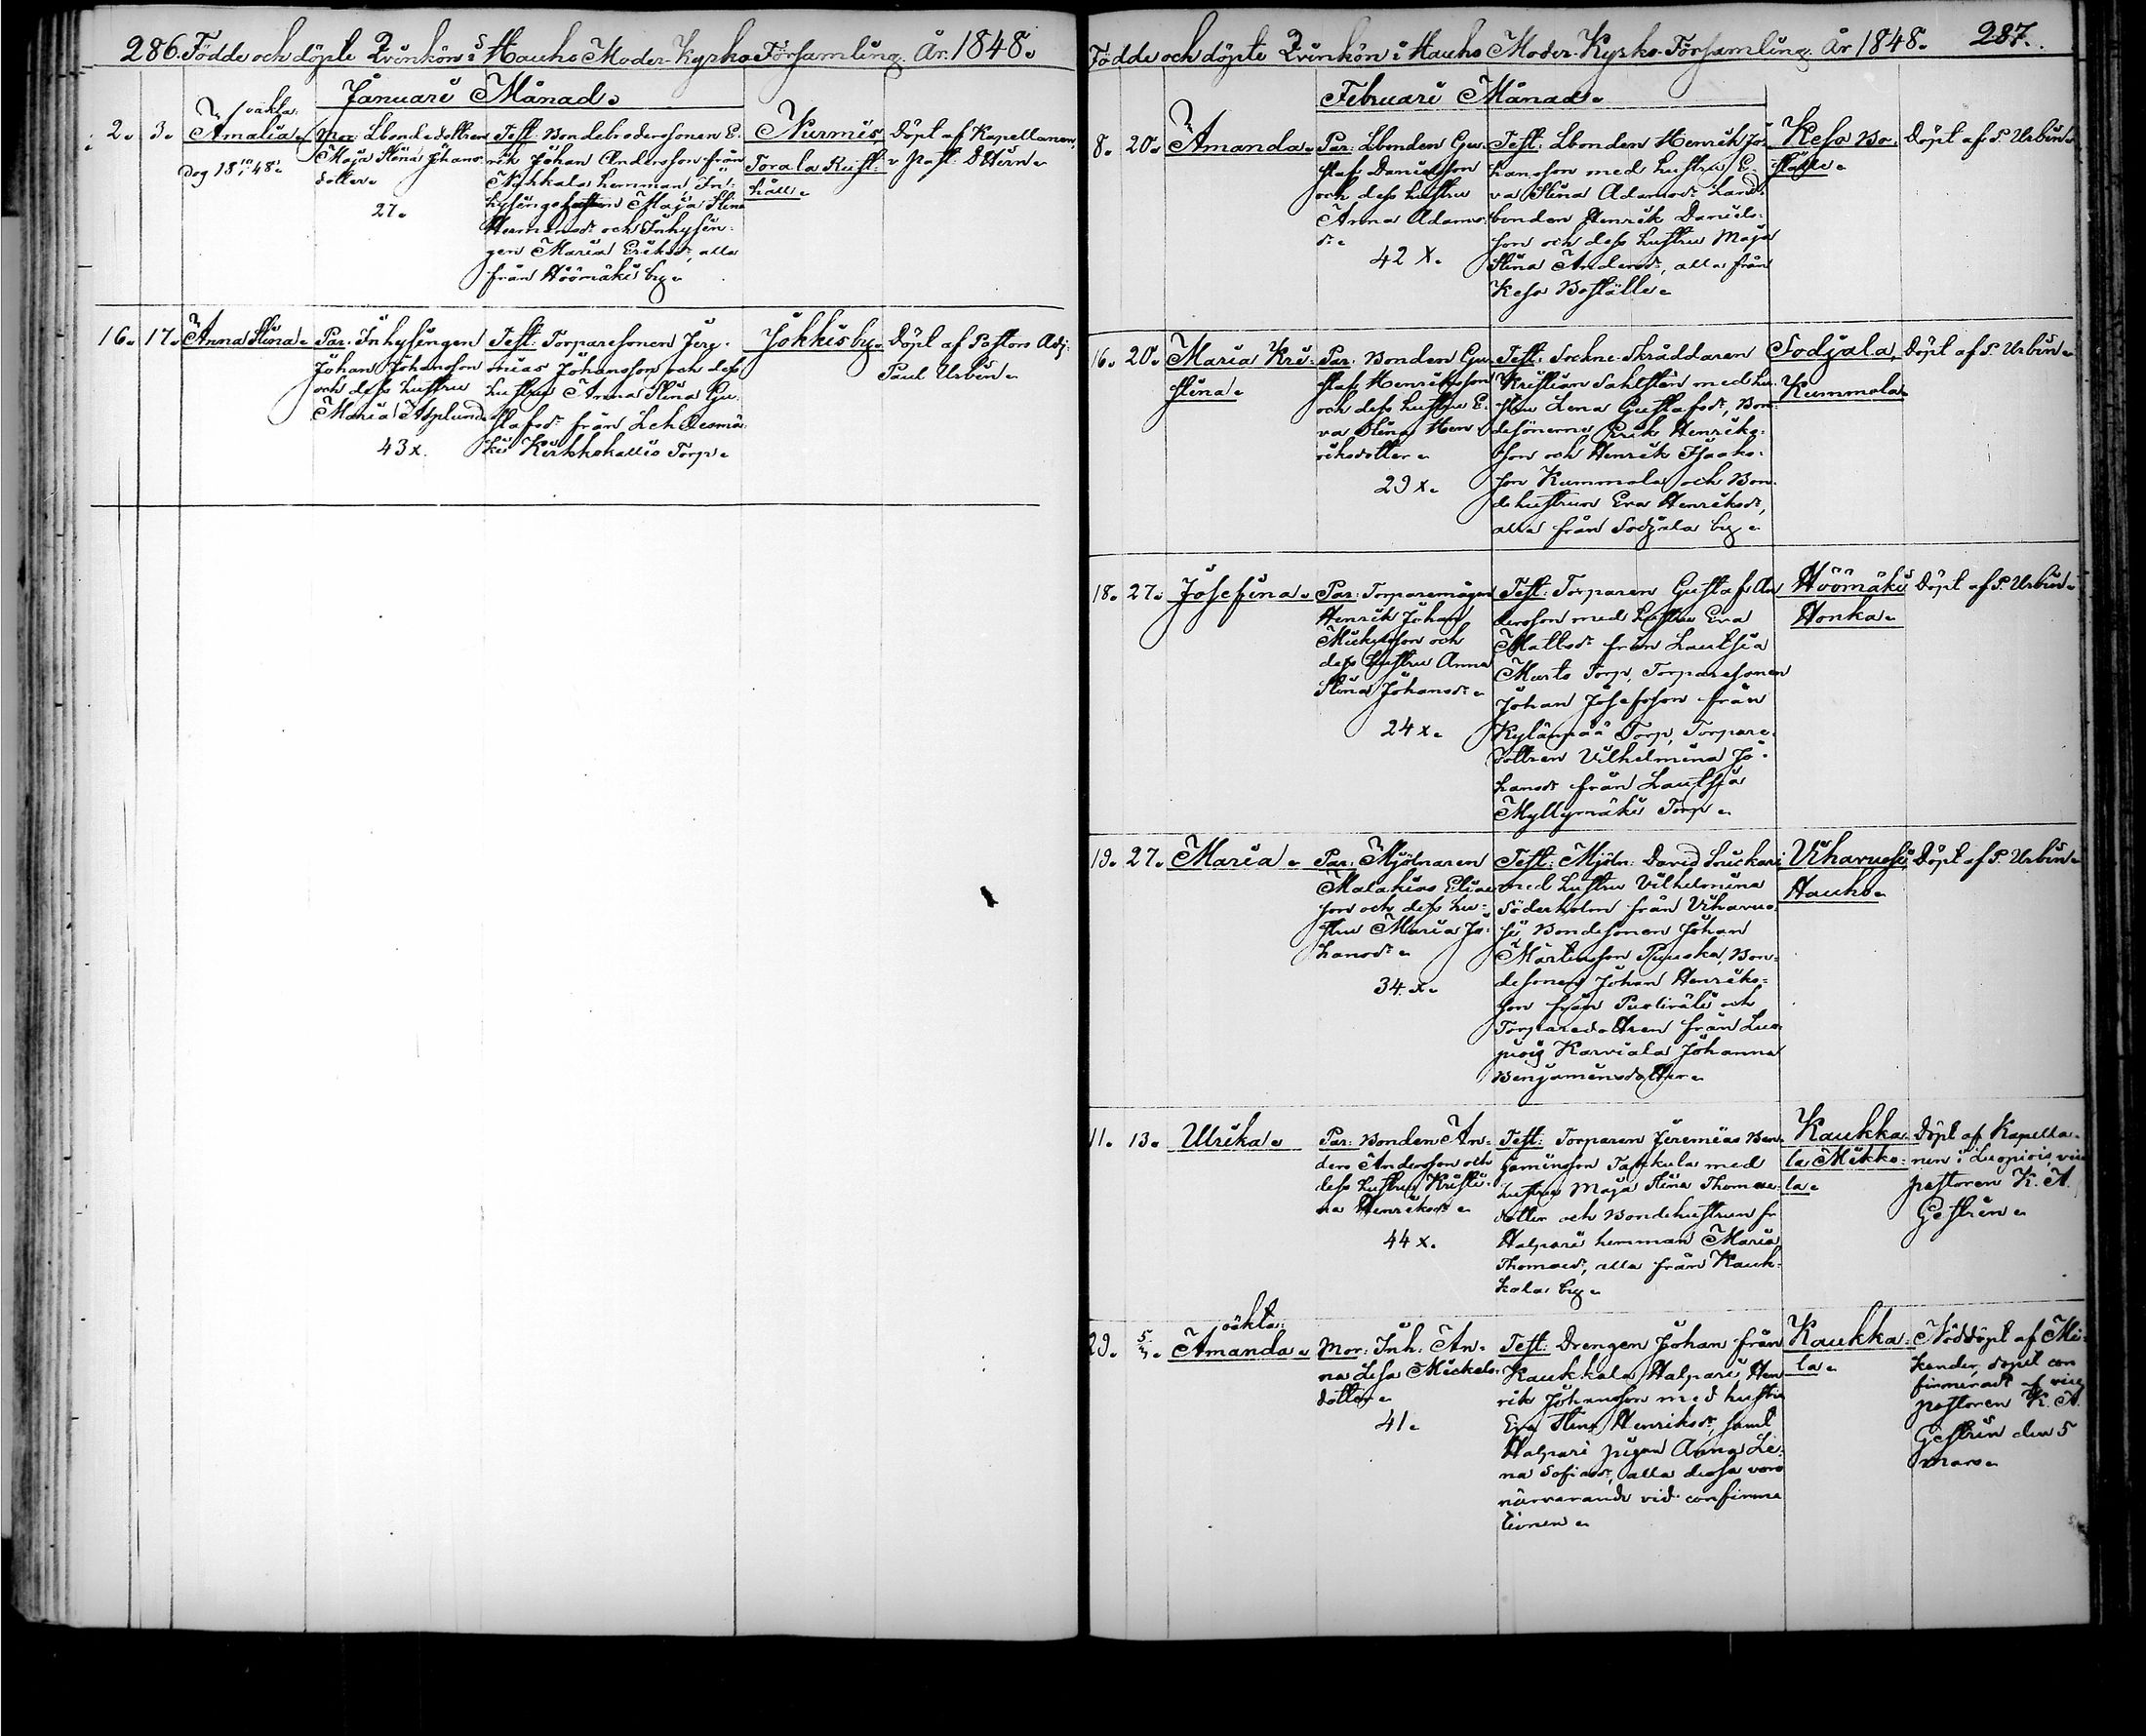 286. Födde och döpte Qvinkön i Hauho Moder-Kyrko-Församling. År 1848.
Januari Månad.
2. 3. oäkta.
Amalia.
Dog 48.
Mor: Lbondedottren
Maja Stina Johans-
dotter.
27.
Test: Bondebrodersonen E-
rik Johan Andersson från
Nykkala hemman, In-
hysinge Maja Stina
Hermansdr och Inhysin-
gen Maria Eriksdr, alla
från Höömäki by.
Nurmis,
Torala Rust-
håll.
Döpt af Kapellanen,
v. Past:
16. 17. Anna Stina.
Par: Inhysingen
Johan Johansson
och dess hustru
Maria Asplund.
43 x.
Test: Torparesonen Jere-
mias Johansson och dess
hustru Anna Stina Gu-
stafsdr från
Kirkkokallio Torp.
Jokkis by.
Döpt af Pastors Adj:
Paul Urbin.
Födde och döpte Qvinkön i Hauho Moder-Kyrko-Församling. År 1848. 287.
Februari Månad.
8. 20. Amanda.
Par: Lbonden Gu-
staf Danielsson
och dess hustru
Anna Adams-
dr.
42 x.
Test: Lbonden Henrik Jo-
hansson med hustru E-
va Stina Adamsdr. Land-
bonden Henrik Daniels-
son och dess hustru Maja
Stina Andersdr, alla från
Keso Boställe.
Keso Bo-
ställe.
Döpt af P. Urbin.
16. 20. Maria Kri-
stina.
Par: Bonden Gu-
staf Henriksson
och dess hustru E-
va Stina Hen-
riksdotter.
29 x.
Test: Sockne-Skräddaren
Kristian Sahlstén med hu-
stru Lena Gustafsdr, Bon-
desönerne Erik Henriks-
son och Henrik Isaaks-
son Kummola och Bon-
dehustrun Eva Henriksdr,
alla från Sodjala by.
Sodjala,
Kummola.
Döpt af P. Urbin.
18. 27. Josefina.
Par: Torparemågen
Henrik Johan
Mickelsson och
dess hustru Anna
Stina Johansdr.
24 x.
Test: Torparen Gustaf An-
dersson med hustru Eva
Mattsdr från Lautsia
Murto Torp, Torparesonen
Johan Josefsson från
Kylänpää Torp, Torpare-
dottren Vilhelmina Jo-
hansdr från Lautsia
Myllymäki Torp.
Höömäki
Honka.
Döpt af P. Urbin.
19. 27. Maria.
Par: Mjölnaren
Malakias Elias-
son och dess hu-
stru Maria Jo-
hansdr.
34 x.
Test: Mjöln: David
med hustru Vilhelmina
Söderholm från Vihavuo-
si Bondesonen Johan
Mårtensson Ruuska, Bon-
desonen Johan Henriks-
son från och
Torparedottren från Luo-
piois Karviala Johanna
Benjaminsdotter.
Vihavuosi,
Hauho.
Döpt af P. Urbin.
11. 13. Ulrika.
Par: Bonden An-
ders Andersson och
dess hustru Kristi-
na Henriksdr.
44 x.
Test: Torparen Jeremias Ben-
jaminsson med
hustru Maja Stina Thomas-
dotter och Bondehustrun fr
Halpari hemman Maria
Thomasdr, alla från Kauk-
kala by.
Kaukka-
la Mikko-
la.
Döpt af Kapella-
nen i Luopiois, vice
pastoren K. A.
Gestrin.
29. 5/3. oäkta.
Amanda.
Mor: Inh. An-
na Lisa Mickels-
dotter.
41.
Test: Drengen Johan från
Kaukkala Halpari, Hen-
rik Johansson med hustru
Eva Stina Henriksdr, samt
Halpari pigan Anna Le-
na Sofiasdr, alla dessa voro
närvarande vid confirma-
tionen.
Kaukka-
la.
Nöddöpt af Mi-
kander, döpet con-
firmeradt af vice
pastoren K. A.
Gestrin den 5
mars.